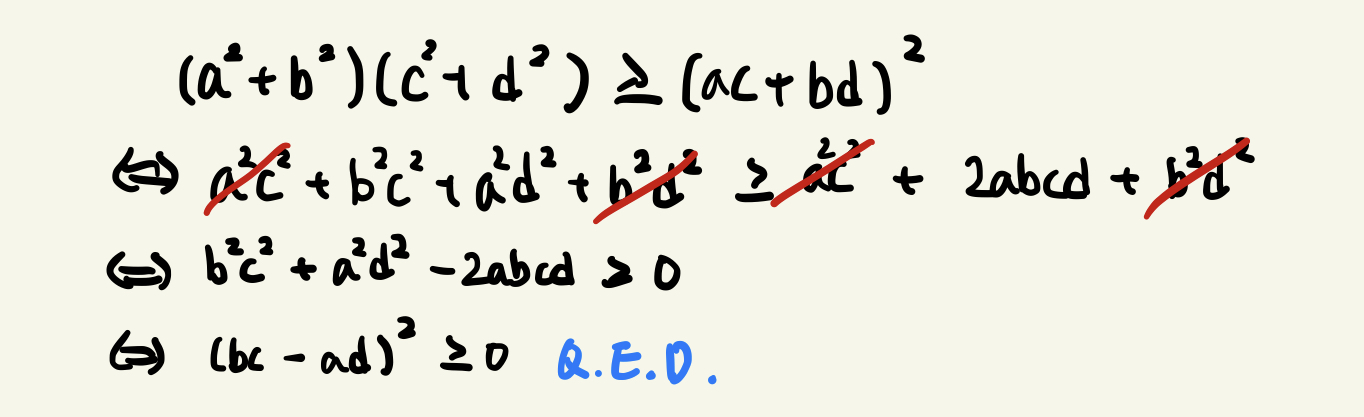 (a²+b²)(c²+d²) ≥ (ac+bd)²
⇔ a²c² + b²c² + a²d² + b²d² ≥ a²c² + 2abcd + b²d²
⇔ b²c² + a²d² - 2abcd ≥ 0
⇔ (bc - ad)² ≥ 0 Q.E.D.